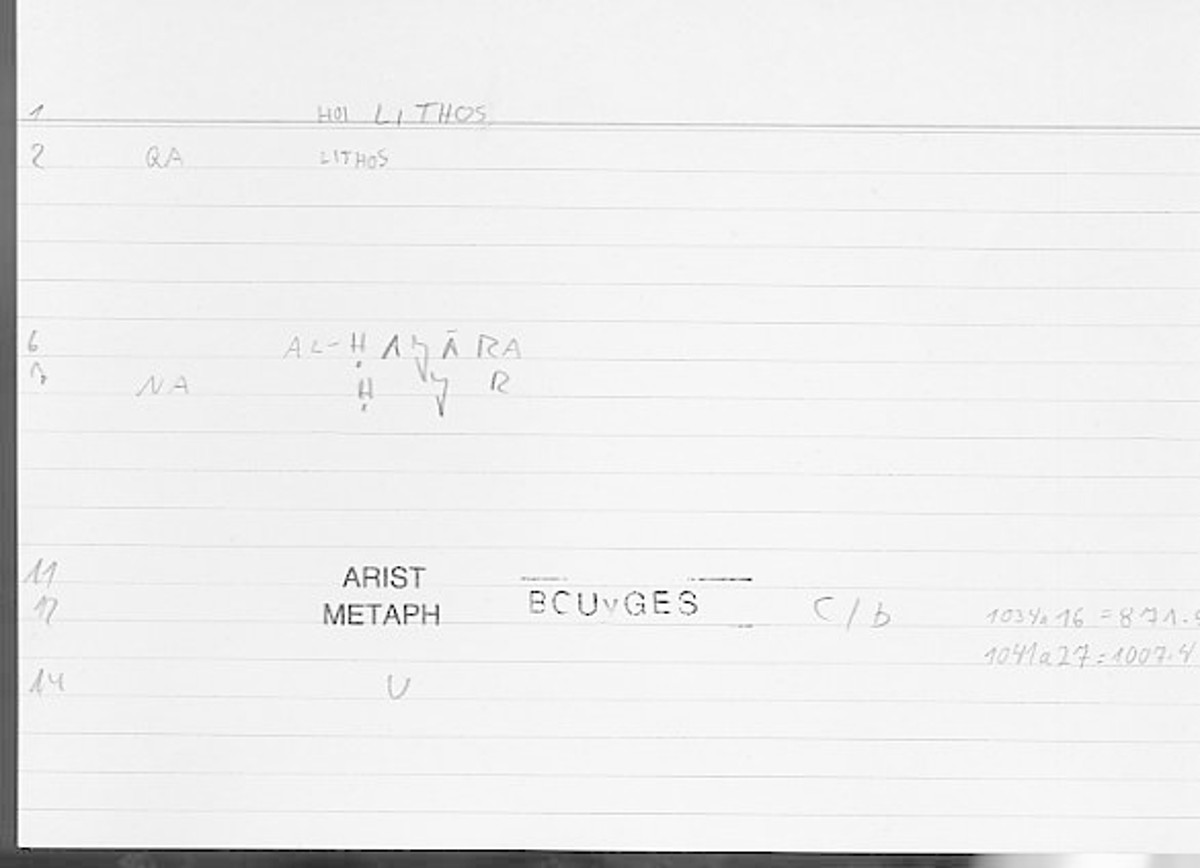 1 HOI LITHOS
2 QA LITHOS
6 AL-ḤAǦĀRA
7 NA Ḥ Ǧ R
11 ARIST
12 METAPH BOUYGES C/b 1034a16 = 871.
1041a27 = 1007.4
14 U